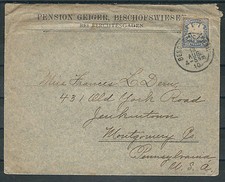 PENSION GEIGER, BISCHOFSWIESEN
BEI BERCHTESGADEN
Miss Frances L. Dern
431 Old York Road
Jenkintown
Montgomery Co
Pennsylvania
U.S.A